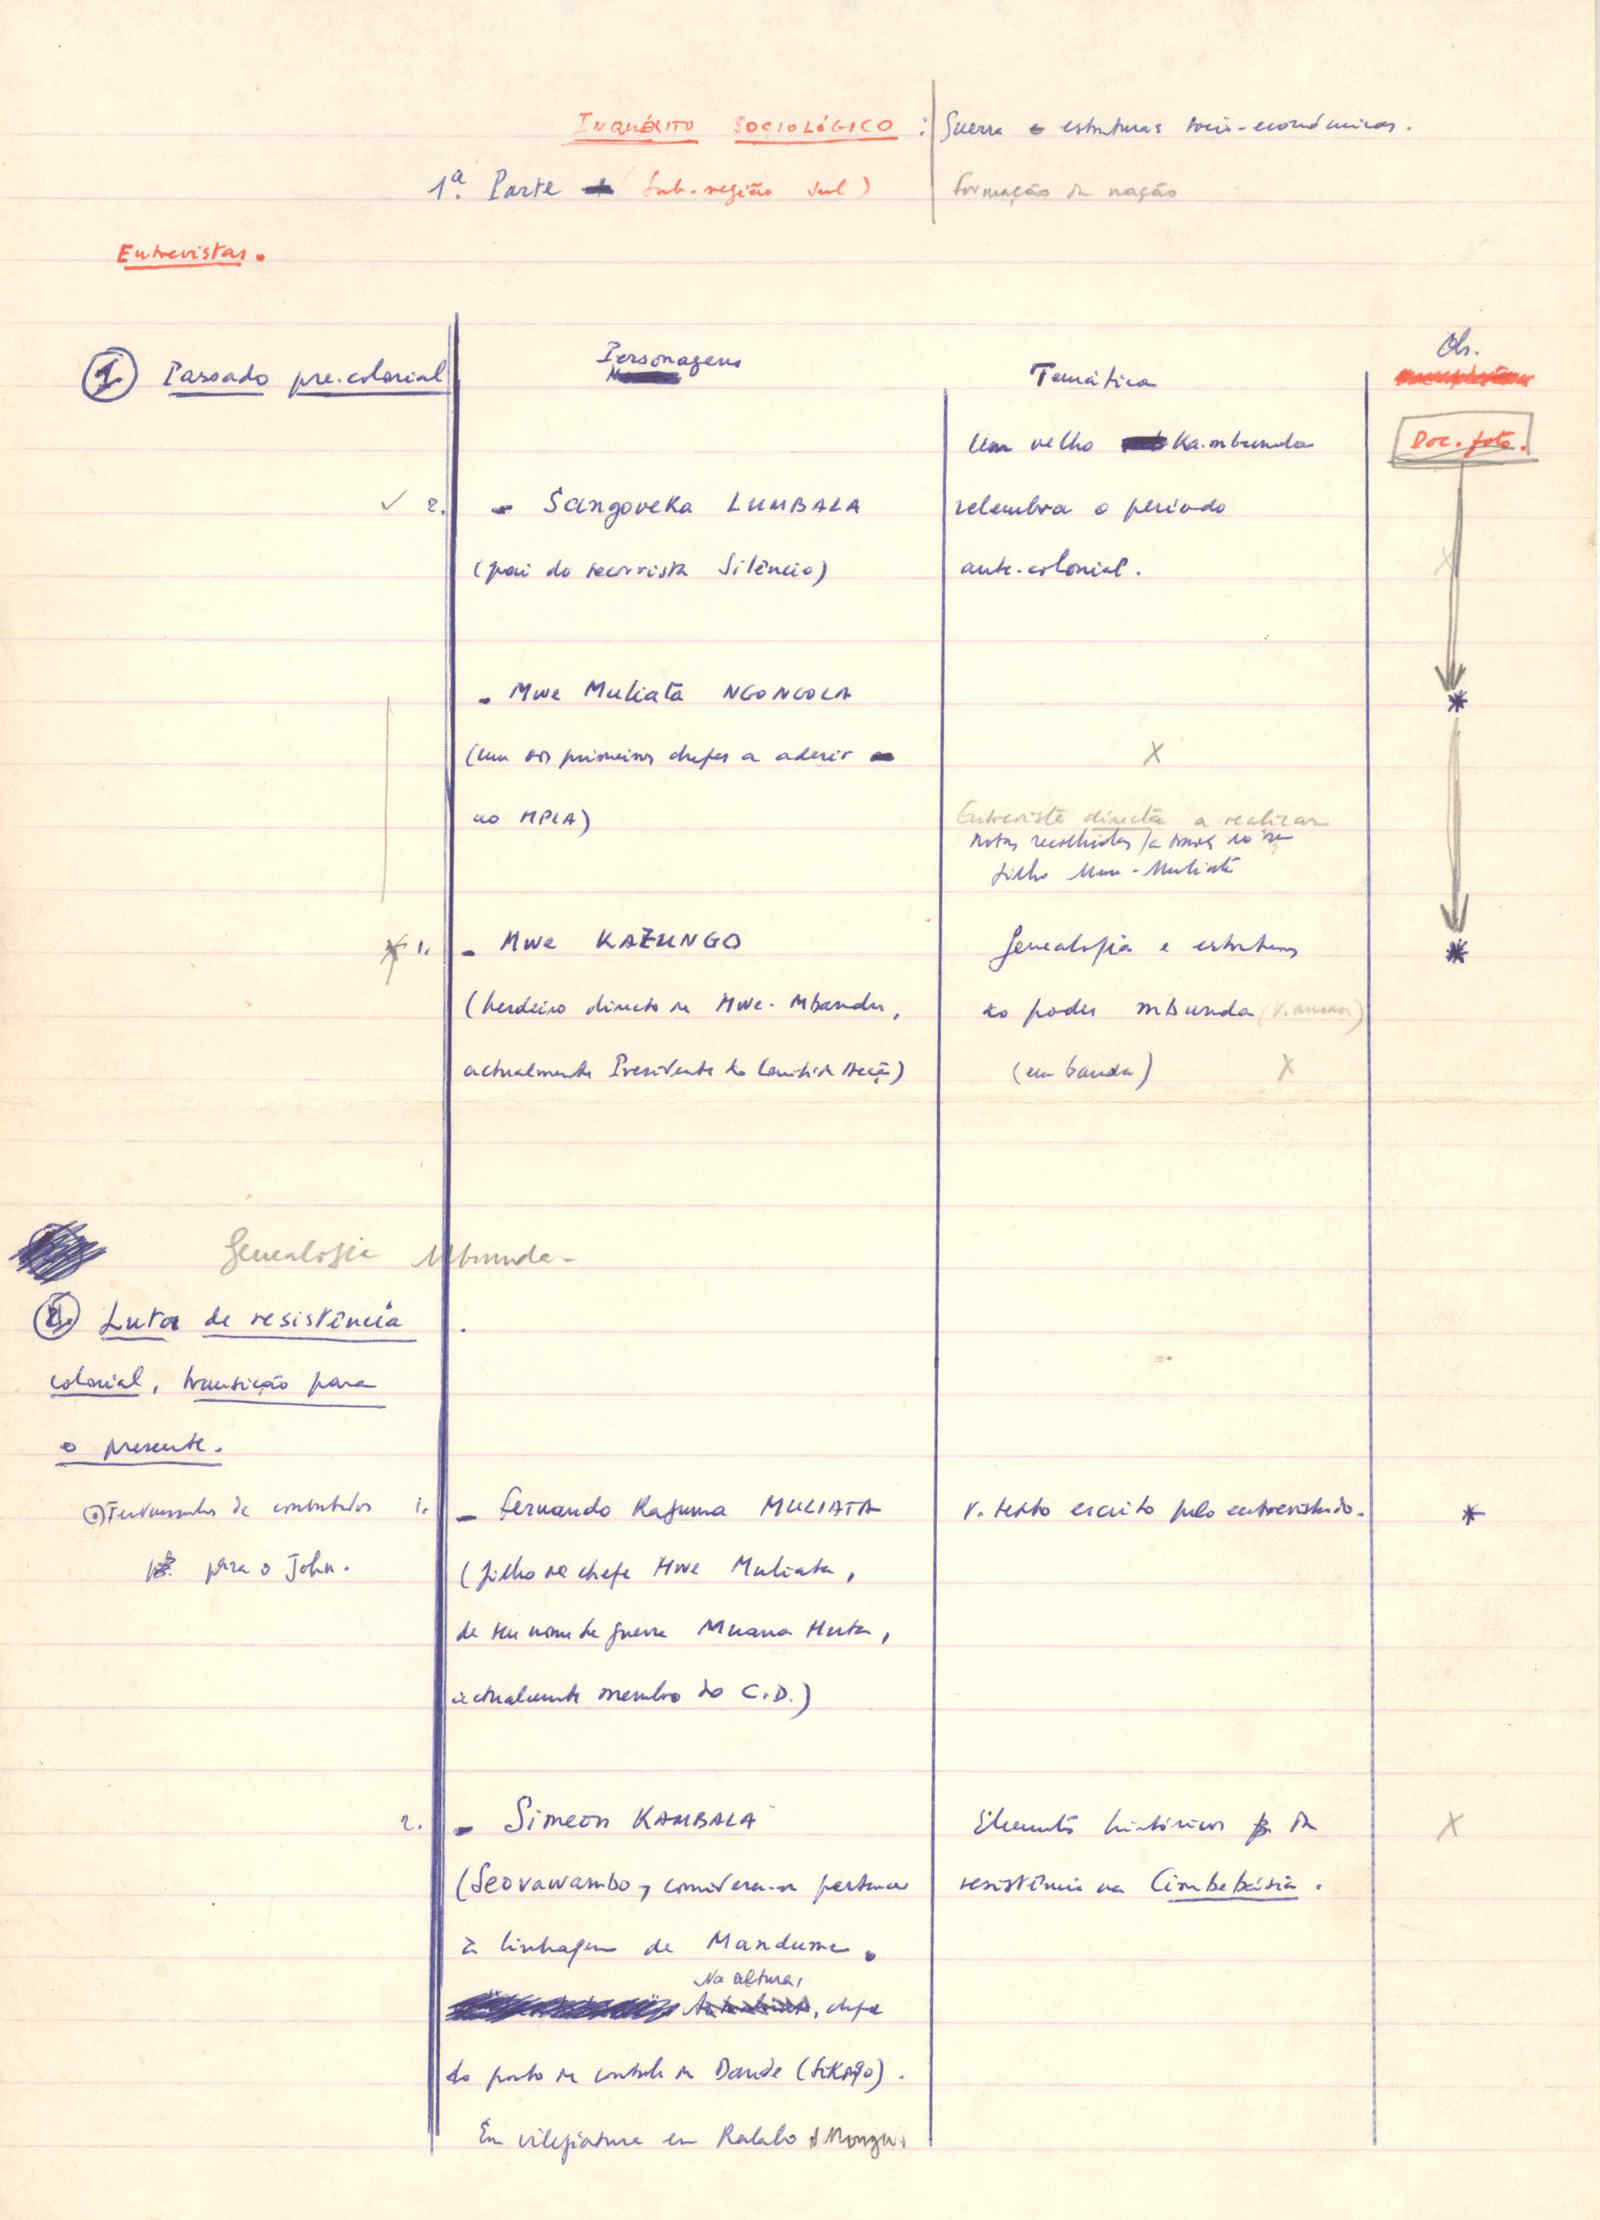 INQUÉRITO SOCIOLÓGICO : Guerra e estruturas sócio-económicas.
1ª. Parte (Sub-região Sul) Formação da nação
Entrevistas.
1. Passado pre-colonial
Personagens
Temática
Obs.
Doc. foto.
Um velho Kambunda
✓ 2. - Sangoveka LUMBALA
relembra o período
(pai do socorrista Silêncio)
ante-colonial.
X
- Mwe Muliata NGONGOLA
*
(um dos primeiros chefes a aderir
X
ao MPLA)
Entrevista directa a realizar
Notas recolhidas
filho Mwe-Muliata
1. - Mwe KAZUNGO
Genealogia e estruturas
*
(herdeiro directo de Mwe-Mbandu,
do poder mbunda (V. anexos)
actualmente Presidente do Comité de Acção)
(em banda) X
Genealogia Mbunda-
2. Luta de resistência
colonial, transição para
o presente.
Testemunhos de contratados
para o John.
1. - Fernando Kafuma MULIATA
V. texto escrito pelo entrevistado.
*
(filho do chefe Mwe Muliata,
de seu nome de guerra Muana Huta,
actualmente membro do C.D.)
2. - Simeon KAMBALA
Elementos históricos da
X
(Seovawambo, considera-se pertencer
resistência na Cimbebásia.
à linhagem de Mandume.
Na altura,
chefe
do posto de controle de Dande (Sikongo).
Em vilegiatura em Kalabo